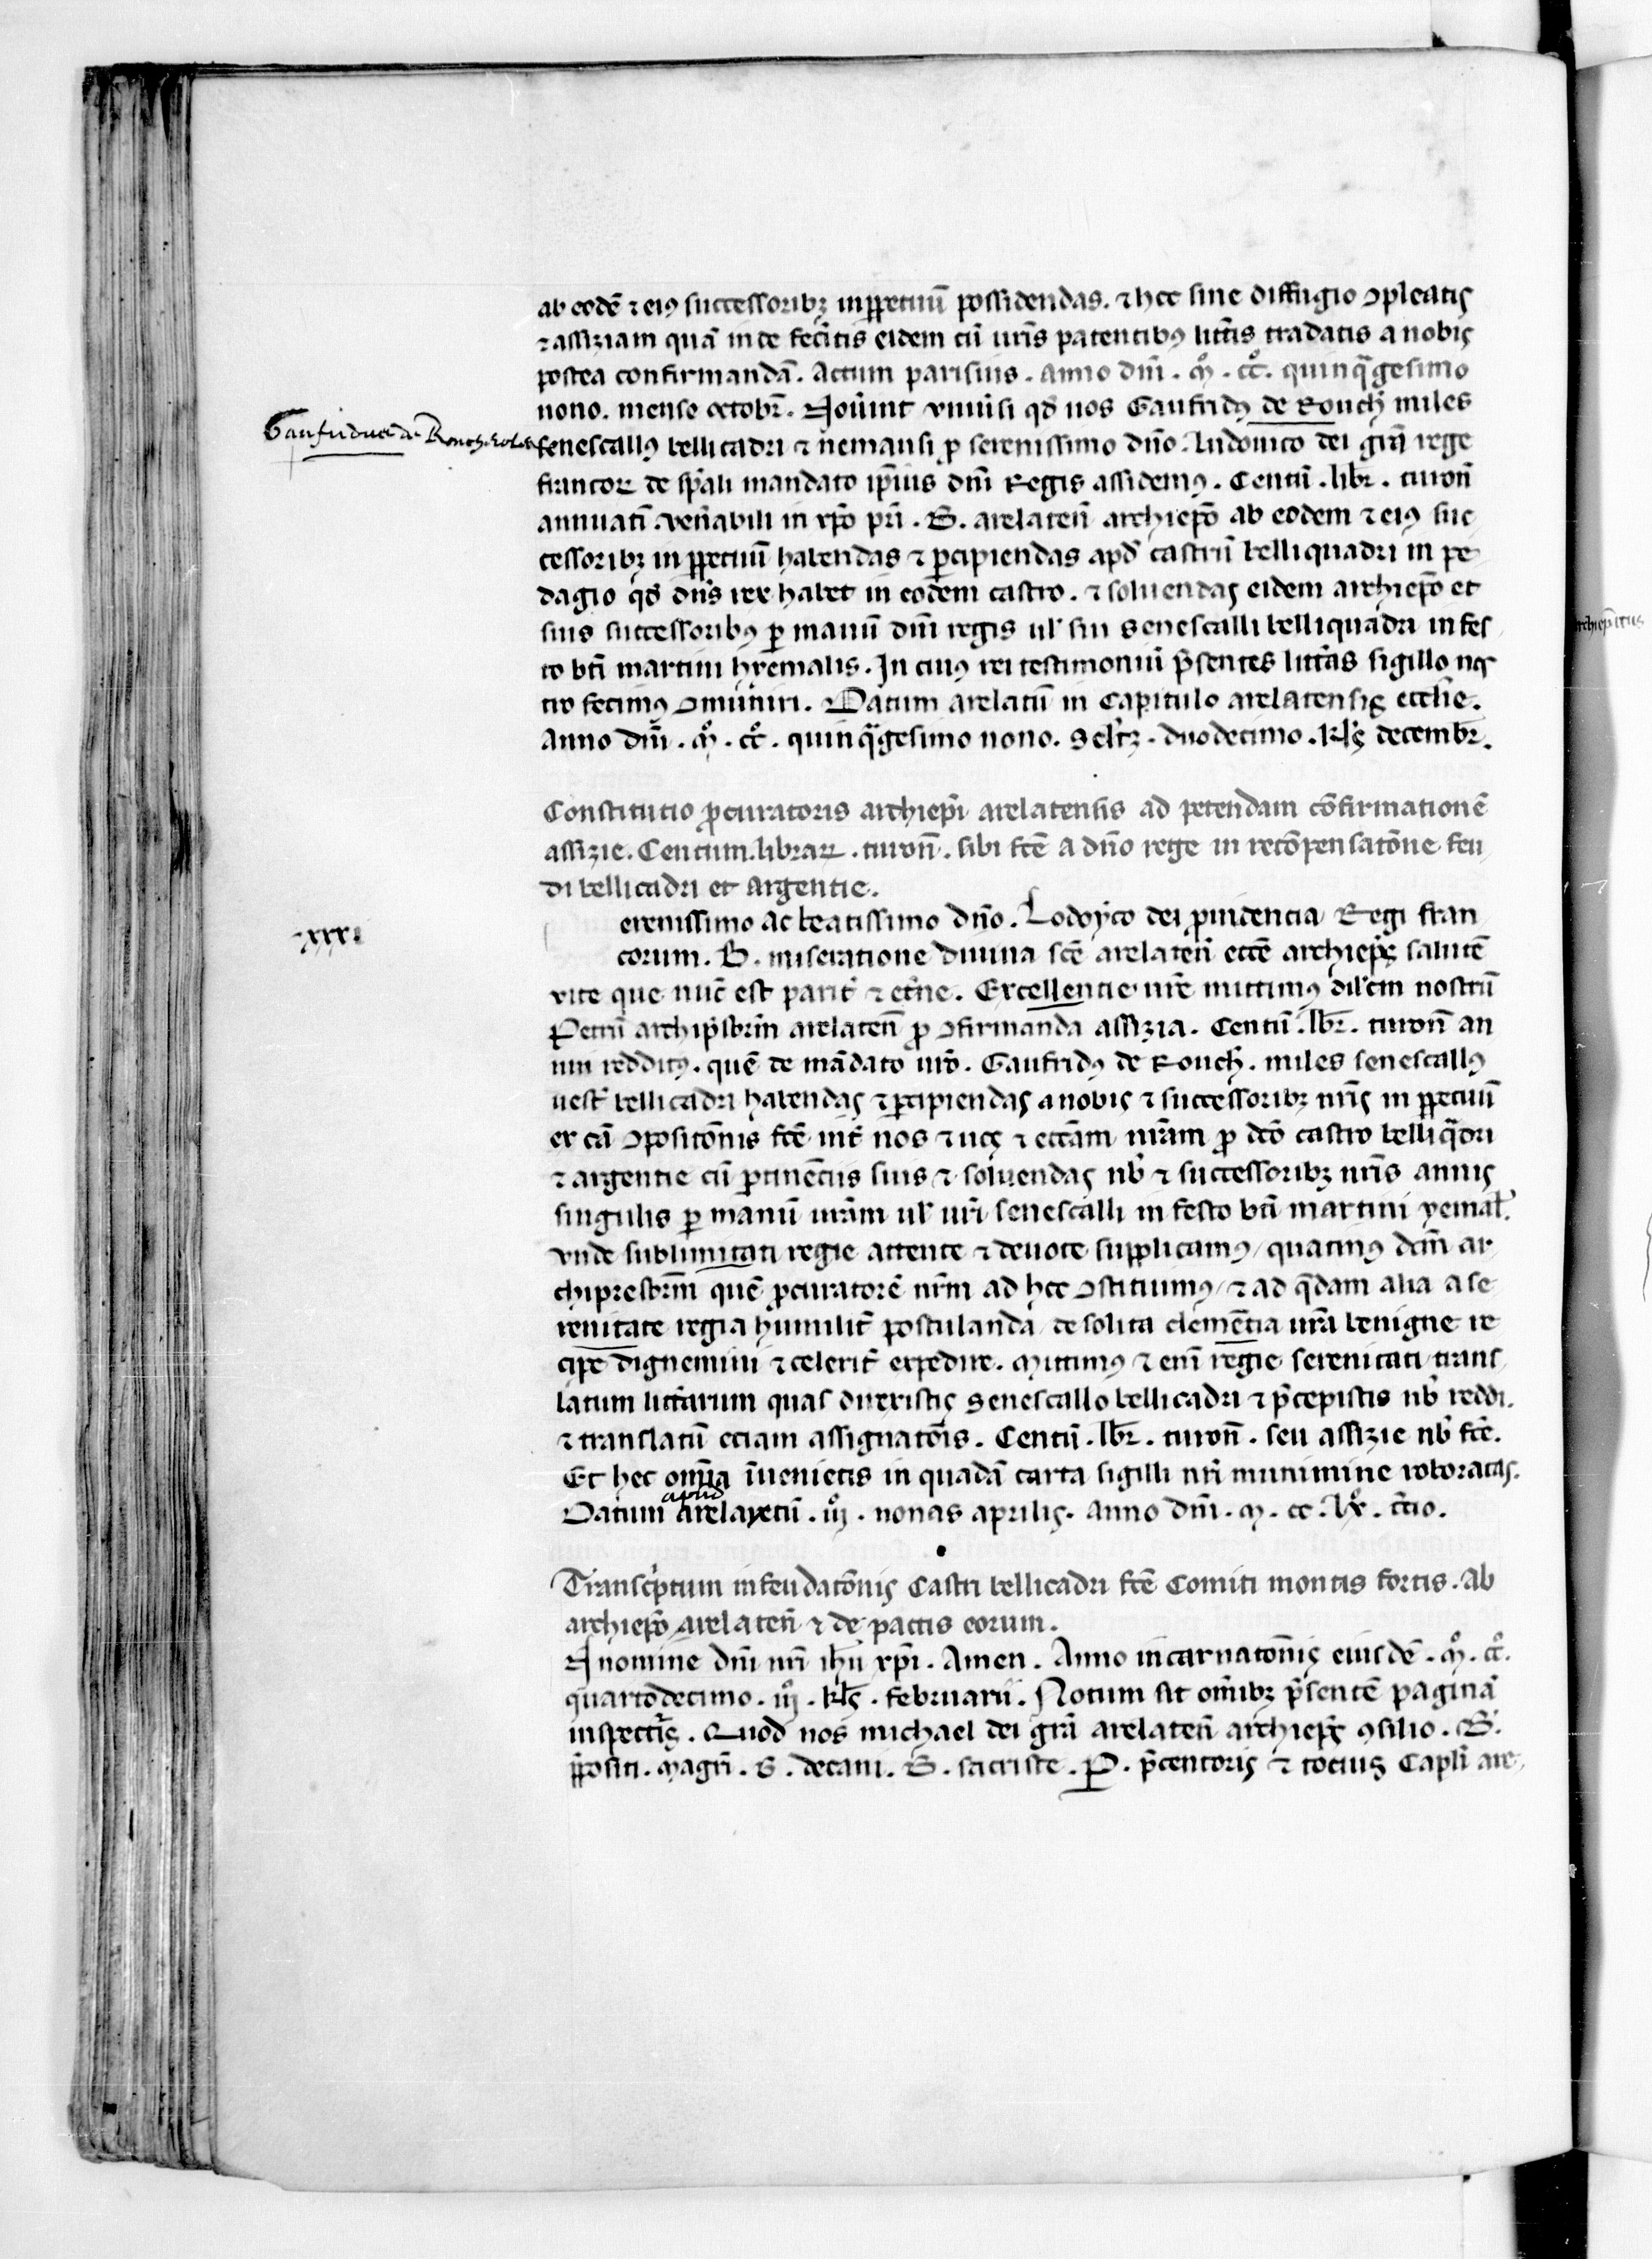 ab eodē ⁊ eiꝰ successoribꝫ inꝑpetuū possidendas. ⁊ hec sine diffugio ꝯpleatis
⁊ assiziam quā inde fecītis eidem cū ur̄is patentibꝰ litt̄is tradatis a nobis
postea confirmandā. Actum parisius. anno dn̄i. mͦ. ccͦ. quinqͣgesimo
nono. mense octobr̄. Nouīnt vniūsi qđ nos Gaufridꝰ de Rouch̄ miles
Gaufridus de Roucherolles
senescallꝰ bellicadri ⁊ nemausi ꝓ serenissimo dn̄o. ludouico dei gr̄a rege
francoꝝ de sp̄ali mandato ip̄ius dn̄i Regis assidemꝰ. Centū. libr̄. turon̄
annuatī. ven̄abili in xp̄o pr̄i. B. arelaten̄ archiep̄o ab eodem ⁊ eiꝰ suc
cessoribꝫ in ꝑpetuū habendas ⁊ ꝑcipiendas apđ castrū belliquadri in pe
dagio qđ dn̄s rex habet in eodem castro. ⁊ soluendas eidem archiep̄o et
suis successoribꝰ ꝑ manū dn̄i regis ul' sui senescalli belliquadri in fes
to bt̄i martini hyemalis. In cuiꝰ rei testimoniū p̄sentes litt̄as sigillo nos
tro fecimꝰ ꝯmuniri. Datum arelatū in Capitulo arelatensis eccl̄ie.
Anno dn̄i. mͦ. ccͦ. quinqͣgesimo nono. scl'ꝫ. duodecimo. kl's decembr̄.
Constitutio ꝓcuratoris archiep̄i arelatensis ad petendam cōfirmationē
assizie. Centum. libraꝝ. turon̄. sibi fc̄e a dn̄o rege in recōpensatōne feu
di bellicadri et argentie.
erenissimo ac beatissimo dn̄o. Lodoyco dei ꝓuidencia Regi fran
xxxi
corum. B. miseratione diuina sc̄e arelaten̄ ecc̄e archiep̄s salutē
vite que nūc est parit̄ ⁊ et̄ne. Excellentie ur̄e mittimꝰ dil'cm nostrū
Petrū archip̄sbr̄in arelaten̄ ꝓ ꝯfirmanda assizia. Centū. lbr̄. turon̄ an
nui redditꝰ. quē de mādato ur̄o. Gaufridꝰ de Rouch̄. miles senescallꝰ
uest̄ bellicadri habendas ⁊ ꝑcipiendas a nobis ⁊ successoribꝫ nr̄is in ꝑpetuū
ex cā ꝯpositōnis fc̄e int̄ nos ⁊ uos ⁊ ecc̄am nr̄am ꝓ dc̄o castro belliqͣdri
⁊ argentie cū ꝑtinēciis suis ⁊ soluendas nb̄ ⁊ successoribꝫ nr̄is annis
singulis ꝑ manū ur̄am ul' ur̄i senescalli in festo bt̄i martini yemal'.
vnde sublimitati regie attente ⁊ deuote supplicamꝰ, quatinꝰ dc̄m ar
chipresbr̄m quē ꝓcuratorē nr̄m ad hec ꝯstituimꝰ, ⁊ ad q̄dam alia a se
renitate regia humilit̄ postulanda, de solita clemētia ur̄a benigne re
cipe dignemini ⁊ celerit̄ expedire. Mittimꝰ ⁊ enī regie serenitati trans
latum litt̄arum quas direxistis senescallo bellicadri ⁊ p̄cepistis nb̄ reddi.
⁊ translatū etiam assignatōis. Centū. lbr̄. turon̄. seu assizie nb̄ fc̄e.
Et hec om̄ia īuenietis in quadā carta sigilli nr̄i munimine roboratas.
apud
Datum arelayctū. iiijͦ. nonas aprilis. anno dn̄i. m. cc. lxͦ. t̄cio.
Transc̄ptum infeudatōnis Castri bellicadri fc̄e Comiti montis fortis. ab
archiep̄o arelaten̄ ⁊ de pactis eorum.
In nomine dn̄i nr̄i ih̄u xp̄i. Amen. Anno incarnatōnis eiusdē. mͦ. ccͦ.
quartodecimo. iiiͦ. kl's. februarii. Notum sit om̄ibꝫ p̄sentē paginā
inspectīs. Quod nos michael dei gr̄a arelaten̄ archiep̄s ꝯsilio. G.
p̄positi. magr̄i. G. decani. B. sacriste. P. p̄centoris ⁊ tocius Capl̄i are